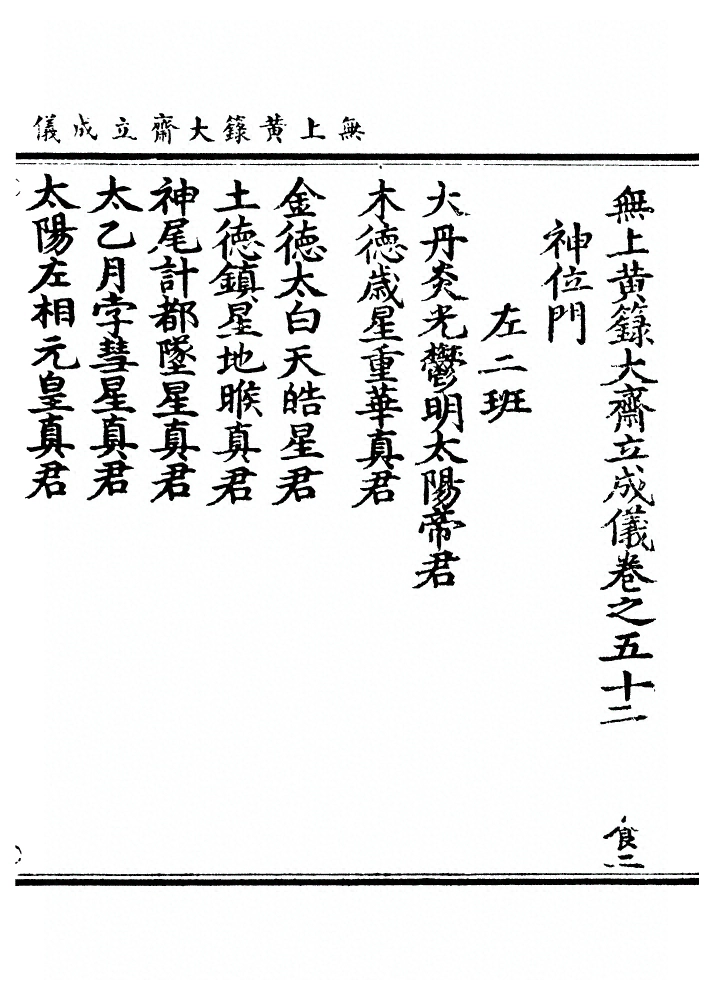 無上黃籙大齋立成儀
無上黃籙大齋立成儀卷之五十二 食二
神位門
左二班
大丹炎光鬱明太陽帝君
木德歲星重華真君
金德太白天皓星君
土德鎮星地睺真君
神尾計都墜星真君
太乙月孛彗星真君
太陽左相元皇真君